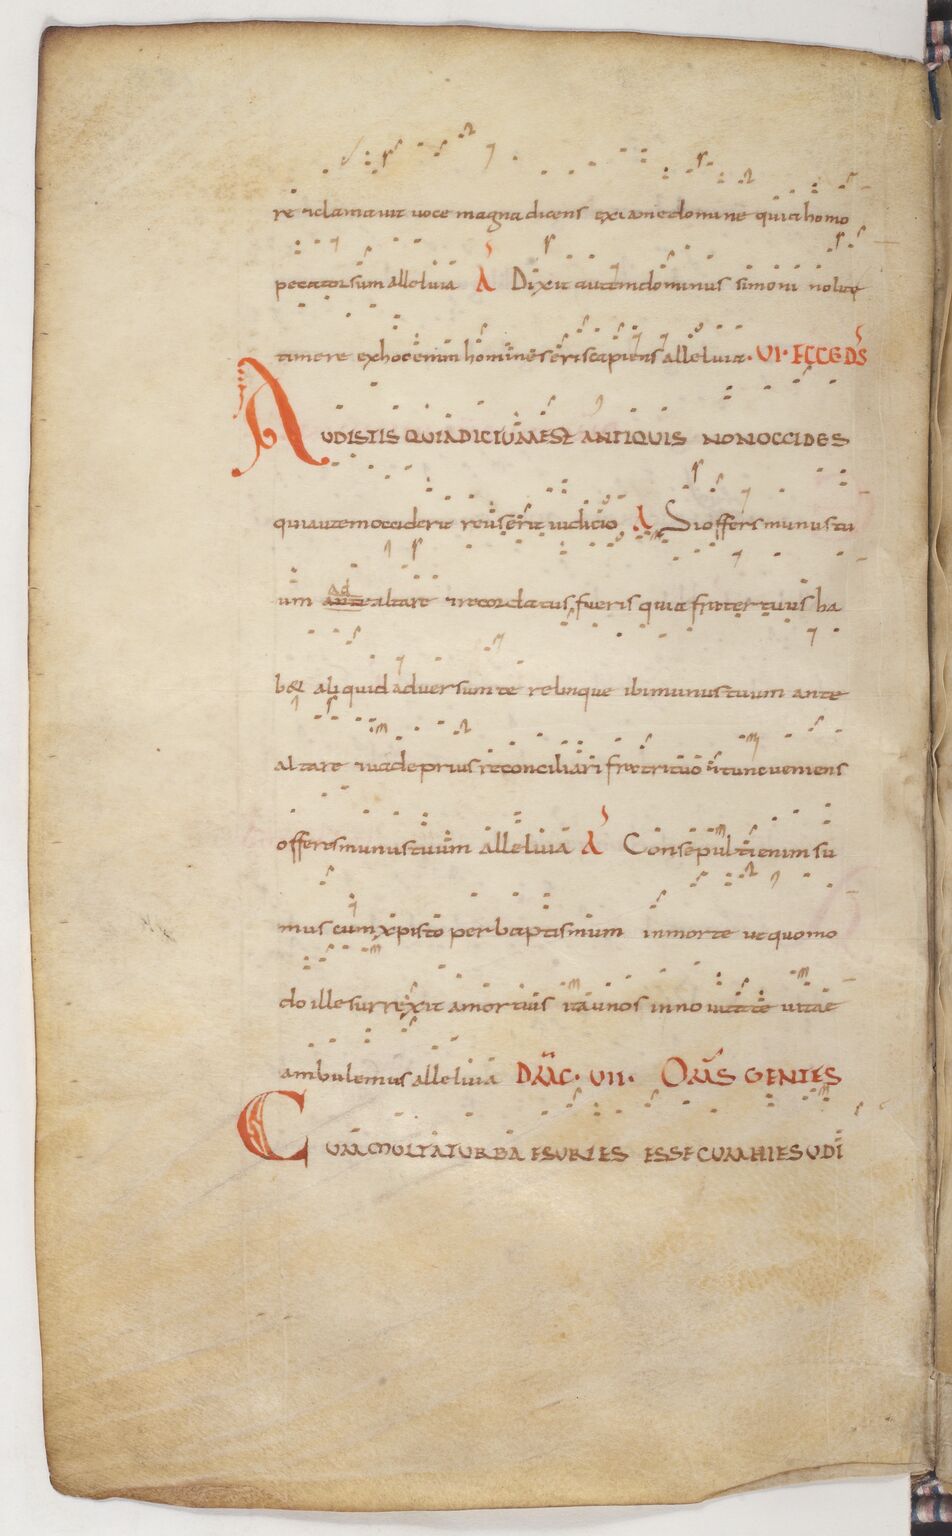 re &clamauit uoce magna dicens exi a me domine quia homo
peccator sum alleluia A Dixit autem dominus simoni nolite
timere ex hoc enim homines eris capiens alleluia. VI. ECCE DS
AUDISTIS QUIA DICTUM EST ANTIQUIS NON OCCIDES
qui autem occiderit reus erit iudicio A Si offers munus tu
um ad altare & recordatus fueris quia frater tuus ha
b& aliquid aduersum te relinque ibi munus tuum ante
altare uade prius reconciliari fratri tuo & tunc ueniens
offeres munus tuum alleluia A Consepulti enim su
mus cum xpisto per baptismum in morte ut quomo
do ille surrexit a mortuis ita & nos in nouitate uitae
ambulemus alleluia DOMC. VII. OMS GENTES
CUM MULTA TURBA ESURIES ESSE CUM HIESU DI